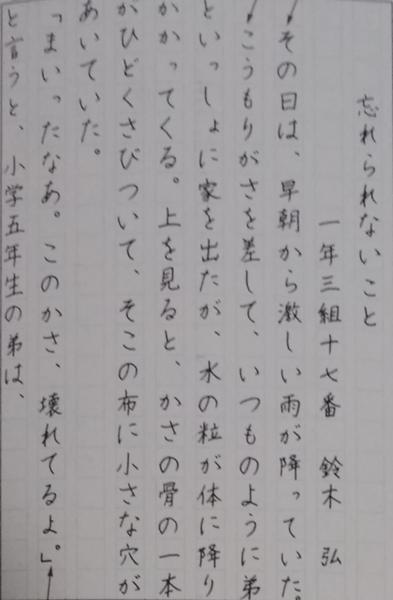 忘れられないこと
一年三組十七番　鈴木　弘
その日は、早朝から激しい雨が降っていた。
こうもりがさを差して、いつものように弟
といっしょに家を出たが、水の粒が体に降り
かかってくる。上を見ると、かさの骨の一本
がひどくさびついて、そこの布に小さな穴が
あいていた。
「まいったなあ。このかさ、壊れてるよ。」
と言うと、小学五年生の弟は、